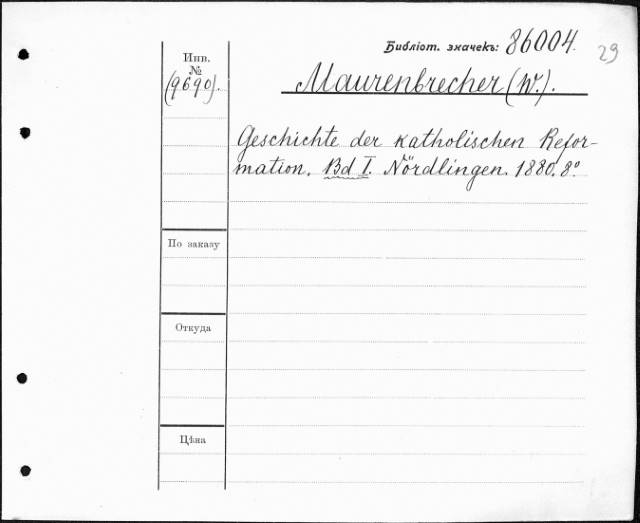 Библіот. значекъ: 86004.
29
Инв.
№
(9690).
Maurenbrecher (W.).
Geschichte der katholischen Refor-
mation. Bd I. Nördlingen. 1880. 8°
По заказу
Откуда
Цѣна